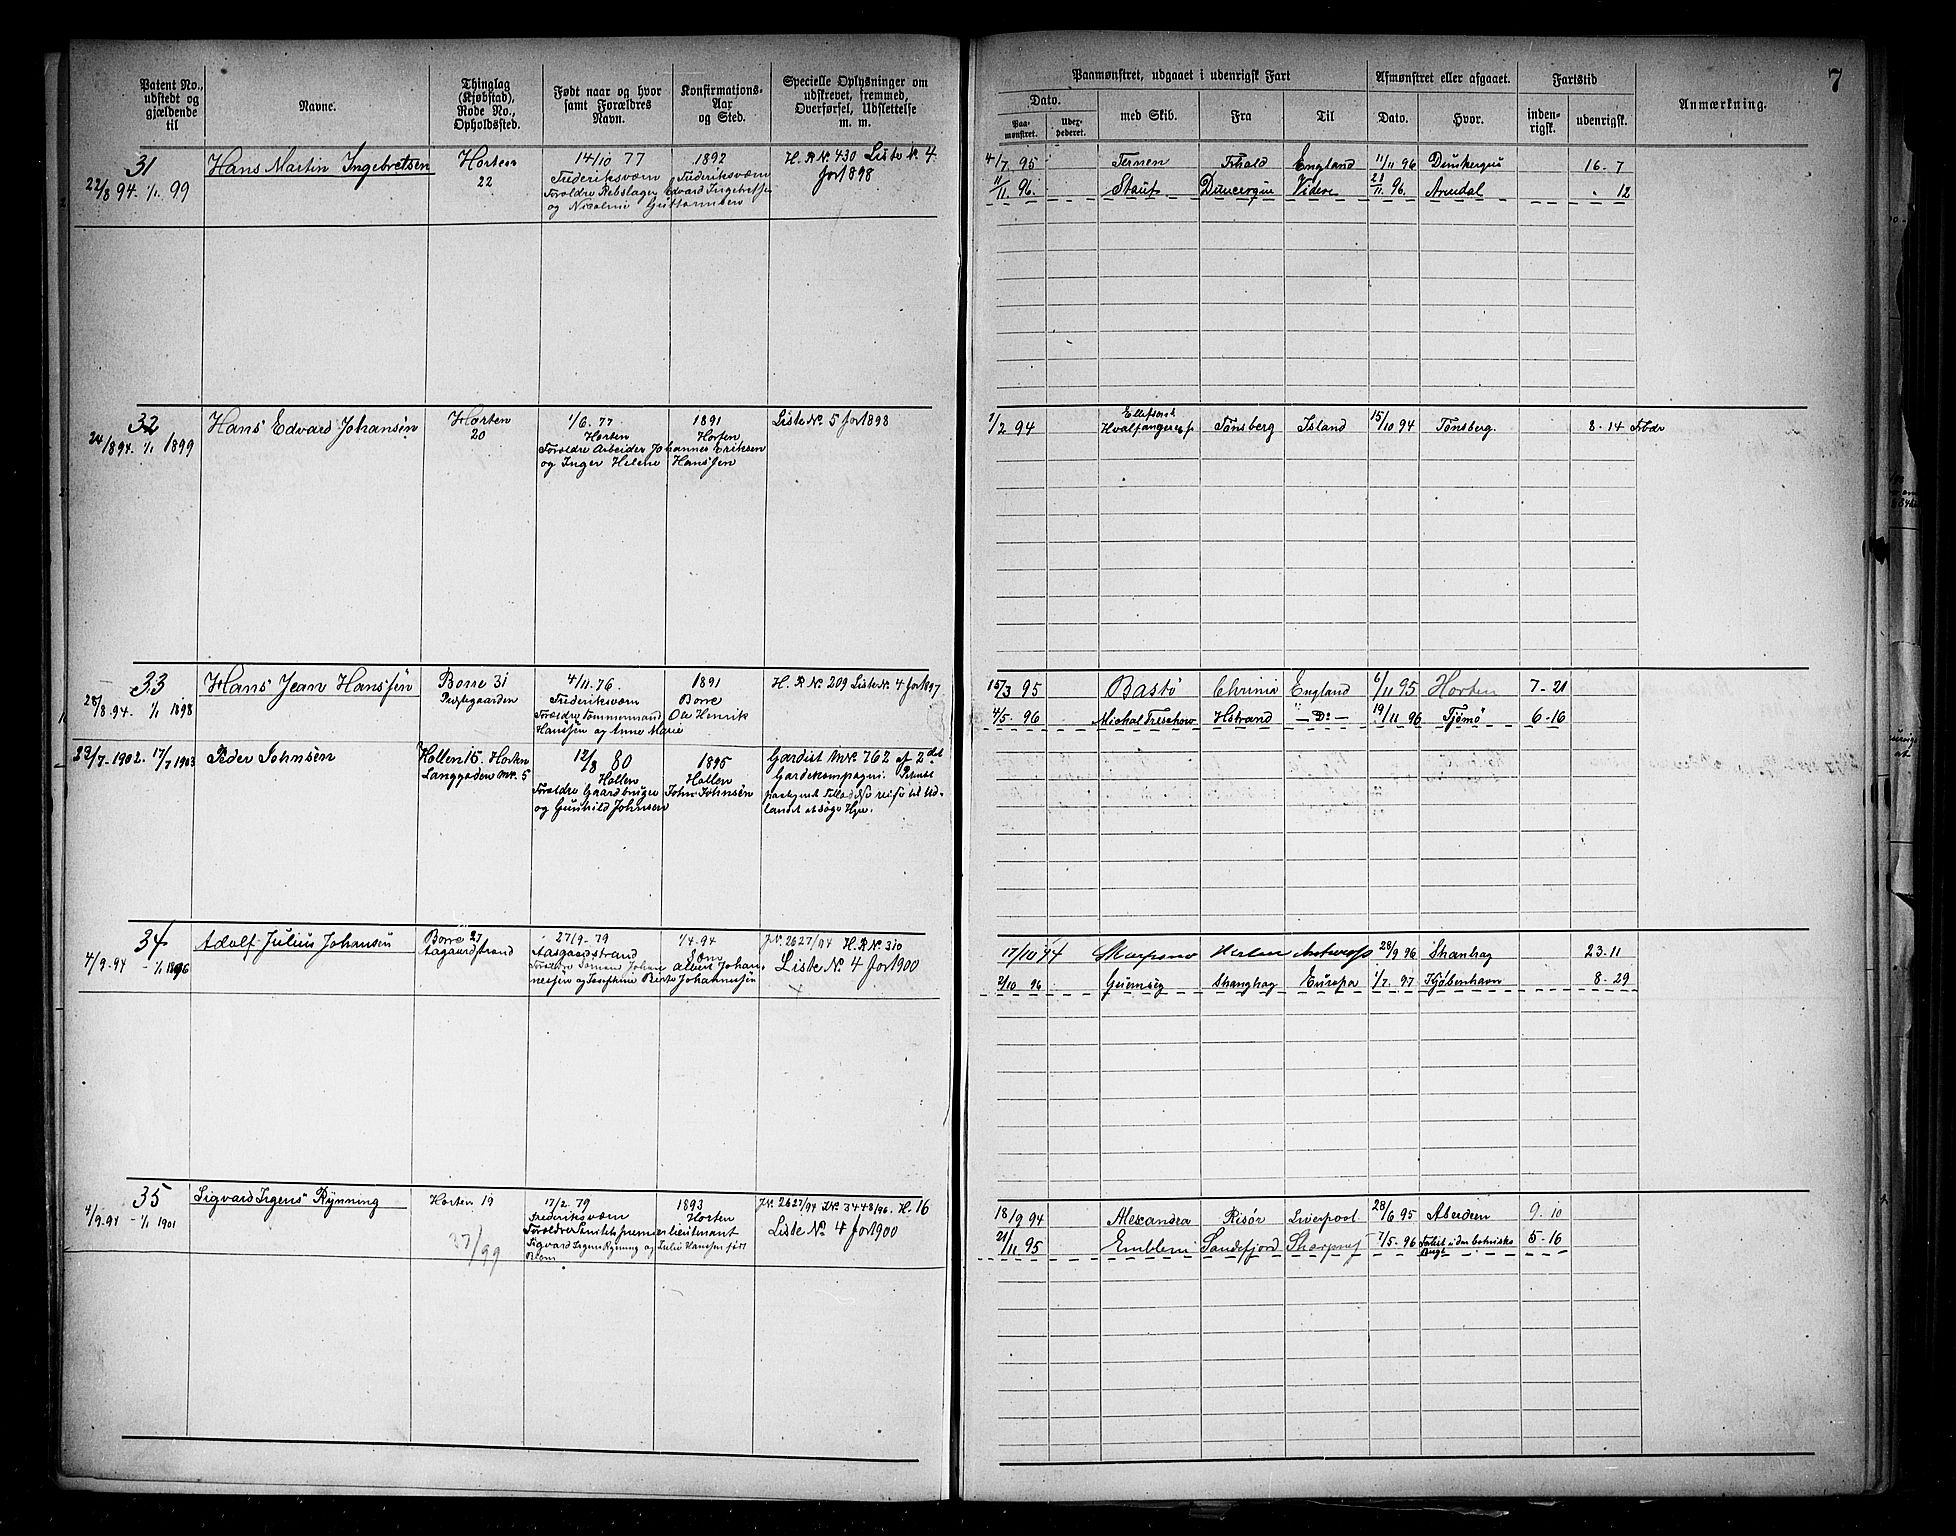 Patent No.,
udstedt og
gjældende
til
Navne.
Thinglag
(Kjøbstad),
Rode No.,
Opholdssted.
Født naar og hvor
samt Forældres
Navn.
Konfirmations-
Aar
og Sted.
Specielle Oplysninger om
udskrevet, fremmed,
Overførsel, Udslettelse
m. m.
31
22/8 94. 1/1. 99
Hans Martin Ingebretsen
Horten
22
14/10 77
Frederiksværn
Forældre Rebslager Edvard Ingebretsen
og Nicoline Guttormsen
1892
Frederiksværn
H. R No. 430 Liste No. 4
for 1898
32
24/8 94. 1/1 1899
Hans Edvard Johansen
Horten
20
1/6. 77
Horten
Forældre Arbeider Johannes Eriksen
og Inger Helene Hanssen
1891
Horten
Liste No. 5 for 1898
33
28/8. 94. 1/1 1898
Hans Jean Hanssen
Borre 31
Prestegaarden
4/11. 76.
Frederiksværn
Forældre Tømmermand Ole Henrik
Hanssen og Anne Marie
1891
Borre
H. R No. 209 Liste No. 4 for 1897
29/7-1902. 17/7 1903
Peder Johnsen
Hollen 15. Horten
Langgaden No. 5
12/8 80
Hollen
Forældre Gaardbruger John Johnsen
og Gunhild Johnsen
1895
Hollen
Gardist No. 762 af 2det
Gardekompagni.
landet at søge Hyre.
34
4/9. 94 - 1/1 1896
Adolf Julius Johansen
Borre 27
Aagaardstrand
27/9-79
Aasgaardstrand
Forældre Sømand Johan Albert Johan-
nessen og Josephine Berta Johannessen
1/4-94
Søm
J.No. 2627/94 H. R No. 310
Liste No. 4 for 1900
35
4/9.94 - 1/1 1901
Sigvard Irgens Rynning
Horten 19
37/99
17/2. 79
Frederiksværn
Forældre Artilleripremierlieutenant
Sigvard Irgens Rynning og Julie Hanssen født
Blom
1893
Horten
J.No. 2627/94 J.No. 3448/96. H. 16
Liste No. 4 for 1900
7
Paamønstret, udgaaet i udenrigsk Fart
Afmønstret eller afgaaet.
Fartstid
Anmærkning.
Dato.
Paa-
mønstret.
Udex-
pederet.
med Skib.
Fra
Til
Dato.
Hvor.
inden-
rigsk.
udenrigsk.
4/7. 95 Ternen Frhald England 11/11 96 Dunkerque 16. 7
11/11. 96. Staut Duncerque Videre 21/11 96. Arendal . 12
1/2 94 Ellefsens Hvalfangeresp. Tønsberg Island 15/10 94 Tønsberg. 8-14
15/3 95 Bastø Chrinia England 6/11 95 Horten 7-21
4/5. 96 Michal Treschow Hstrand — Do — 19/11 96 Tjømø 6-16
17/10 94 28/9 96 Shanhag 23. 11
2/10 96 Shanghag Europa 1/7. 97 Kjøbenhavn 8-29
18/9 94 Alexandra Risør Liverpool 28/6 95 Aberdeen 9. 10
21/11 95 Emblem Sandefjord 7/5. 96 Forlist i den botniske Bugt 5-16